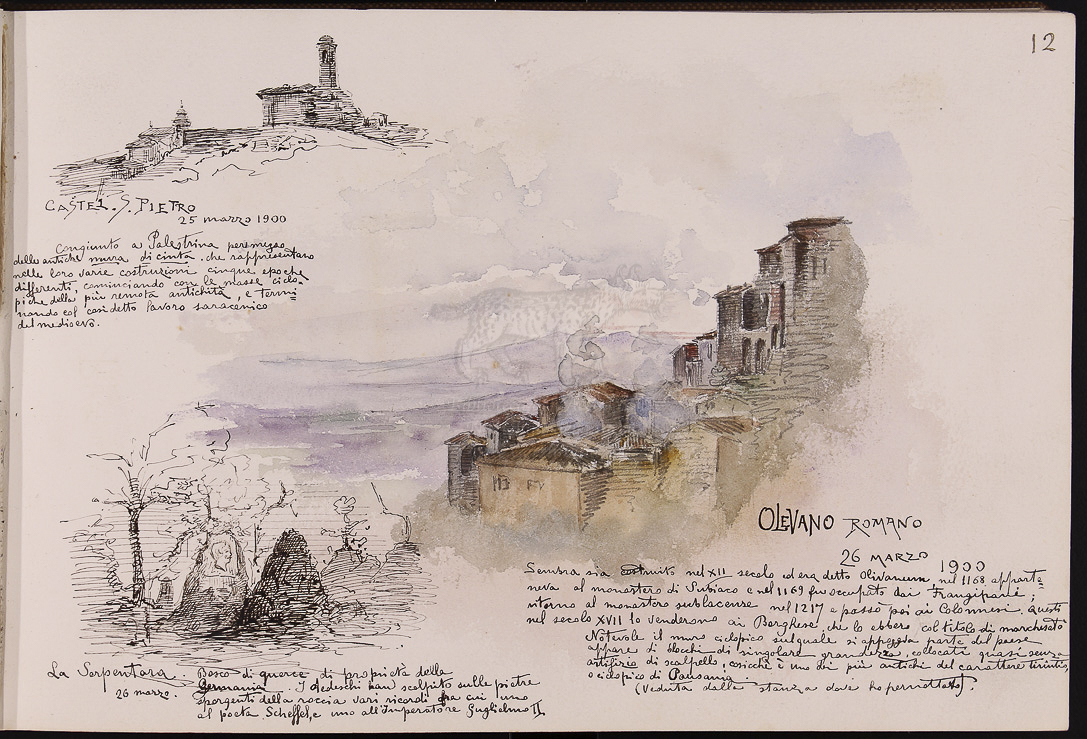 12
CASTEL S. PIETRO
25 marzo 1900
Congiunto a Palestrina per mezzo
delle antiche mura di cinta che rappresentano
nelle loro varie costruzioni cinque epoche
differenti, cominciando con le masse ciclo-
piche della più remota antichità, e termi-
nando col così detto lavoro saracenico
del medioevo.
OLEVANO ROMANO
26 MARZO 1900
Sembra sia costruito nel XII secolo ed era detto Olivanum, nel 1168 apparte-
neva al monastero di Subiaco e nel 1169 fu occupato dai Frangipane;
ritorno al monastero sublacense nel 1217 e passò poi ai Colonnesi. Questi
nel secolo XVII lo venderono ai Borghese, che lo ebbero col titolo di marchesato
Notevole il muro ciclopico sul quale si appoggia parte del paese
appare di blocchi di singolare grandezza, collocati quasi senza
artifizio di scalpello, cosicchè è uno dei più antichi del carattere tirintio,
o ciclopico di Pausania.
(Veduta dalla stanza dove ho pernottato).
La Serpentara.
26 marzo.
Bosco di querce di proprietà della
Germania. I tedeschi han scolpito sulle pietre
sporgenti della roccia vari ricordi fra cui uno
al poeta Scheffel, e uno all'Imperatore Guglielmo II